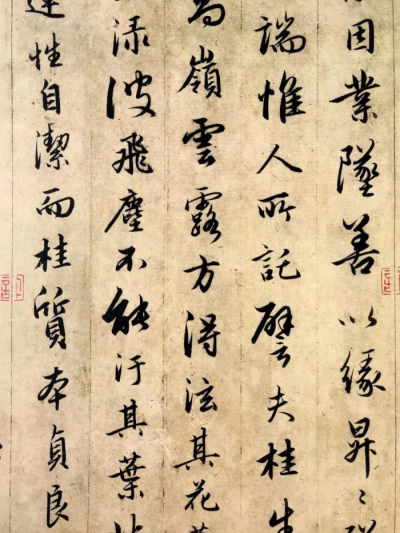 因業墜善以緣昇〻
端惟人所託譬夫桂生
為嶺雲露方得泫其花
淥波飛塵不能汙其葉
蓮性自潔而桂質本貞良